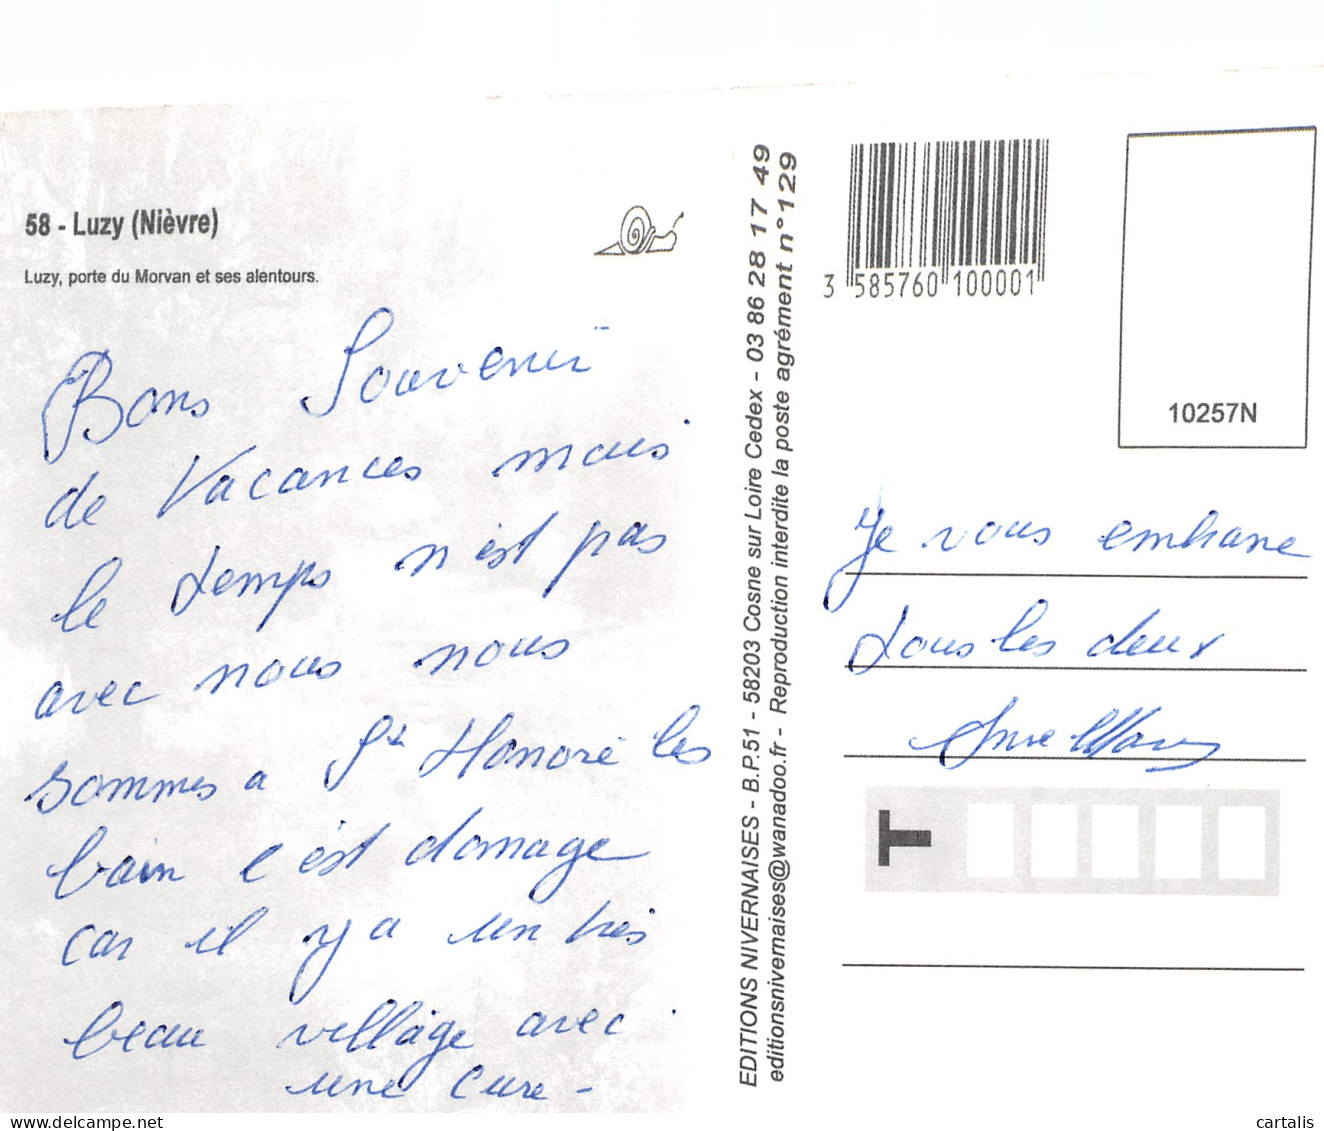 58 - Luzy (Nièvre)
Luzy, porte du Morvan et ses alentours.
Bons Souvenir
de Vacances mais
le temps n'est pas
avec nous nous
sommes a St Honoré les
bain c'est domage
car il y a un très
beau village avec
une cure -
EDITIONS NIVERNAISES - B.P.51 - 58203 Cosne sur Loire Cedex - 03 86 28 17 49
editionsnivernaises@wanadoo.fr - Reproduction interdite la poste agrément n°129
3 585760 100001
10257N
Je vous embrasse
tous les deux
T
cartalis